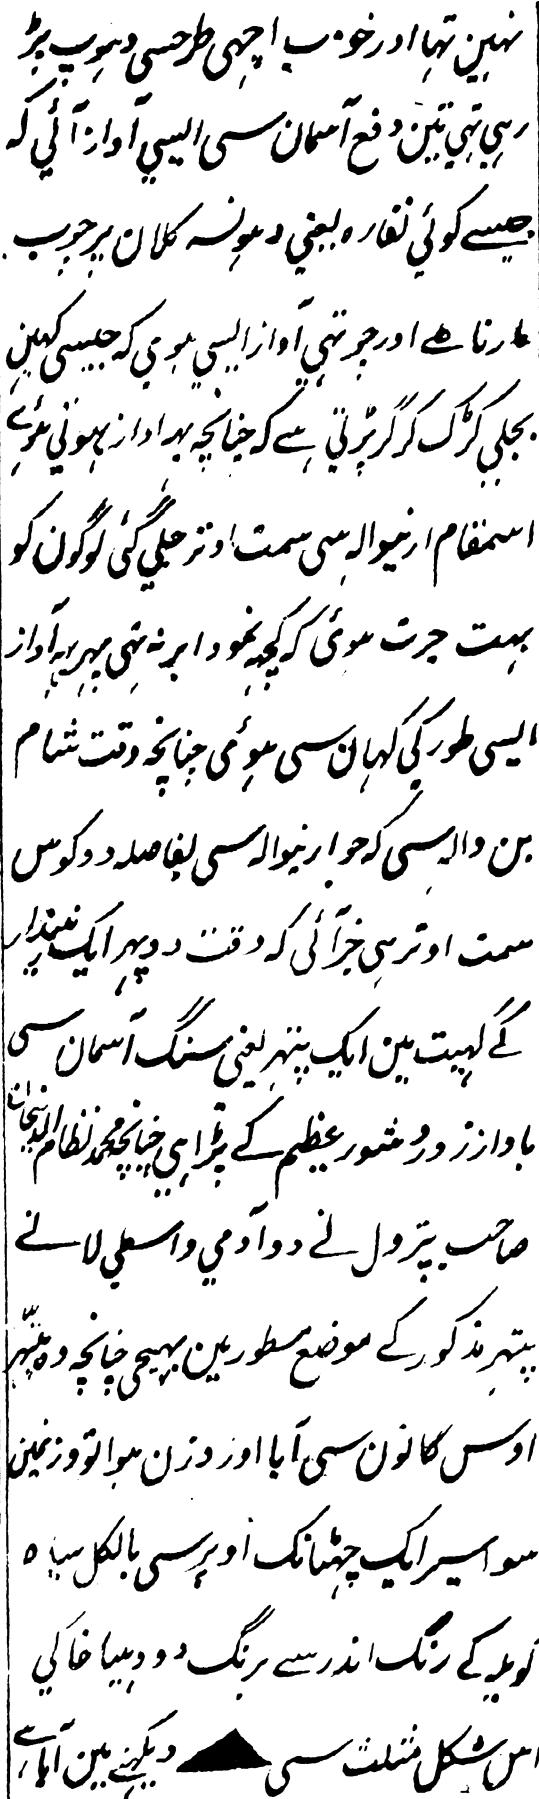 نہین تہا اور خوب اچھی طرحسی دہوپ پڑ
رہی تہی تین دفع آسمان سی ایسی آواز آئی کہ
جیسے کوئی نقارہ یعنی دہونسہ کلان پر چوب
مارتا ہے اور چوتہی آواز ایسی ہوی کہ جیسی کہین
بجلی کڑک کر گر پڑتی ہے کہ چنانچہ یہہ اواز ہوتی ہوئے
اسمقام ارنیوالہ سی سمت اوتر چلی گئی لوگون کو
بہت حیرت ہوئی کہ کچہہ نمود ابر نہ تہی پہر یہہ آواز
ایسی طور کی کہان سی ہوئی چنانچہ وقت شام
بن والہ سی کہ جو ارنیوالہ سی بفاصلہ دو کوس
سمت اوتر ہی خبر آئی کہ وقت دوپہر ایک نمبردار
کے کہیت مین ایک پتہر یعنی سنگ آسمان سی
باواز زور و شور عظیم کے پڑا ہی چنانچہ محمد نظام الدینخان
صاحب پترول نے دو آدمی واسطی لانے
پتہر مذکور کے موضع مسطور مین بہیجی چنانچہ وہ پتہر
اوس گانون سی آیا اور وزن ہوا تو وزنمین
سوا سیر ایک چہٹانک اوپر سی بالکل سیاہ
کویلہ کے رنگ اندر سے برنگ دودہیا خاکی
اس شکل مثلث سی دیکہنے مین آیا ہے